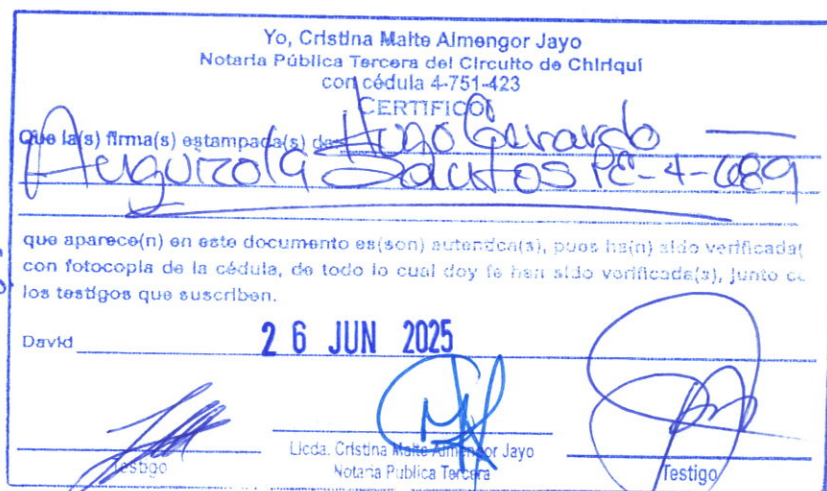 Yo, Cristina Maite Almengor Jayo
Notaria Pública Tercera del Circuito de Chiriquí
con cédula 4-751-423
CERTIFICO
Que la(s) firma(s) estampada(s) de Hugo Gerardo
Santos PE-4-689
que aparece(n) en este documento es(son) autentica(s), pues ha(n) sido verificada(
con fotocopia de la cédula, de todo lo cual doy fe han sido verificada(s), junto
los testigos que suscriben.
David 26 JUN 2025
Licda. Cristina Maite Almengor Jayo
Testigo Notaria Publica Tercera Testigo